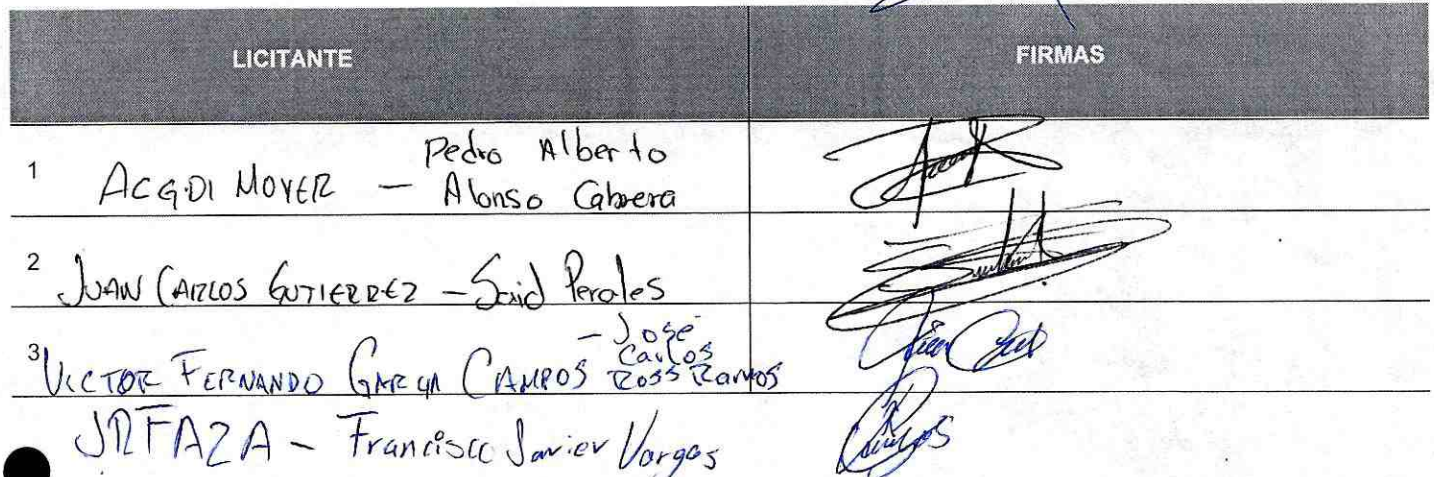 LICITANTE FIRMAS
1 ACGDI MOYER — Pedro Alberto
Alonso Cabrera
2 JUAN CARLOS GUTIERREZ - Said Perales
3 VICTOR FERNANDO GARCIA CAMPOS - José
Carlos
Ross Ramos
JRFAZA - Francisco Javier Vargas